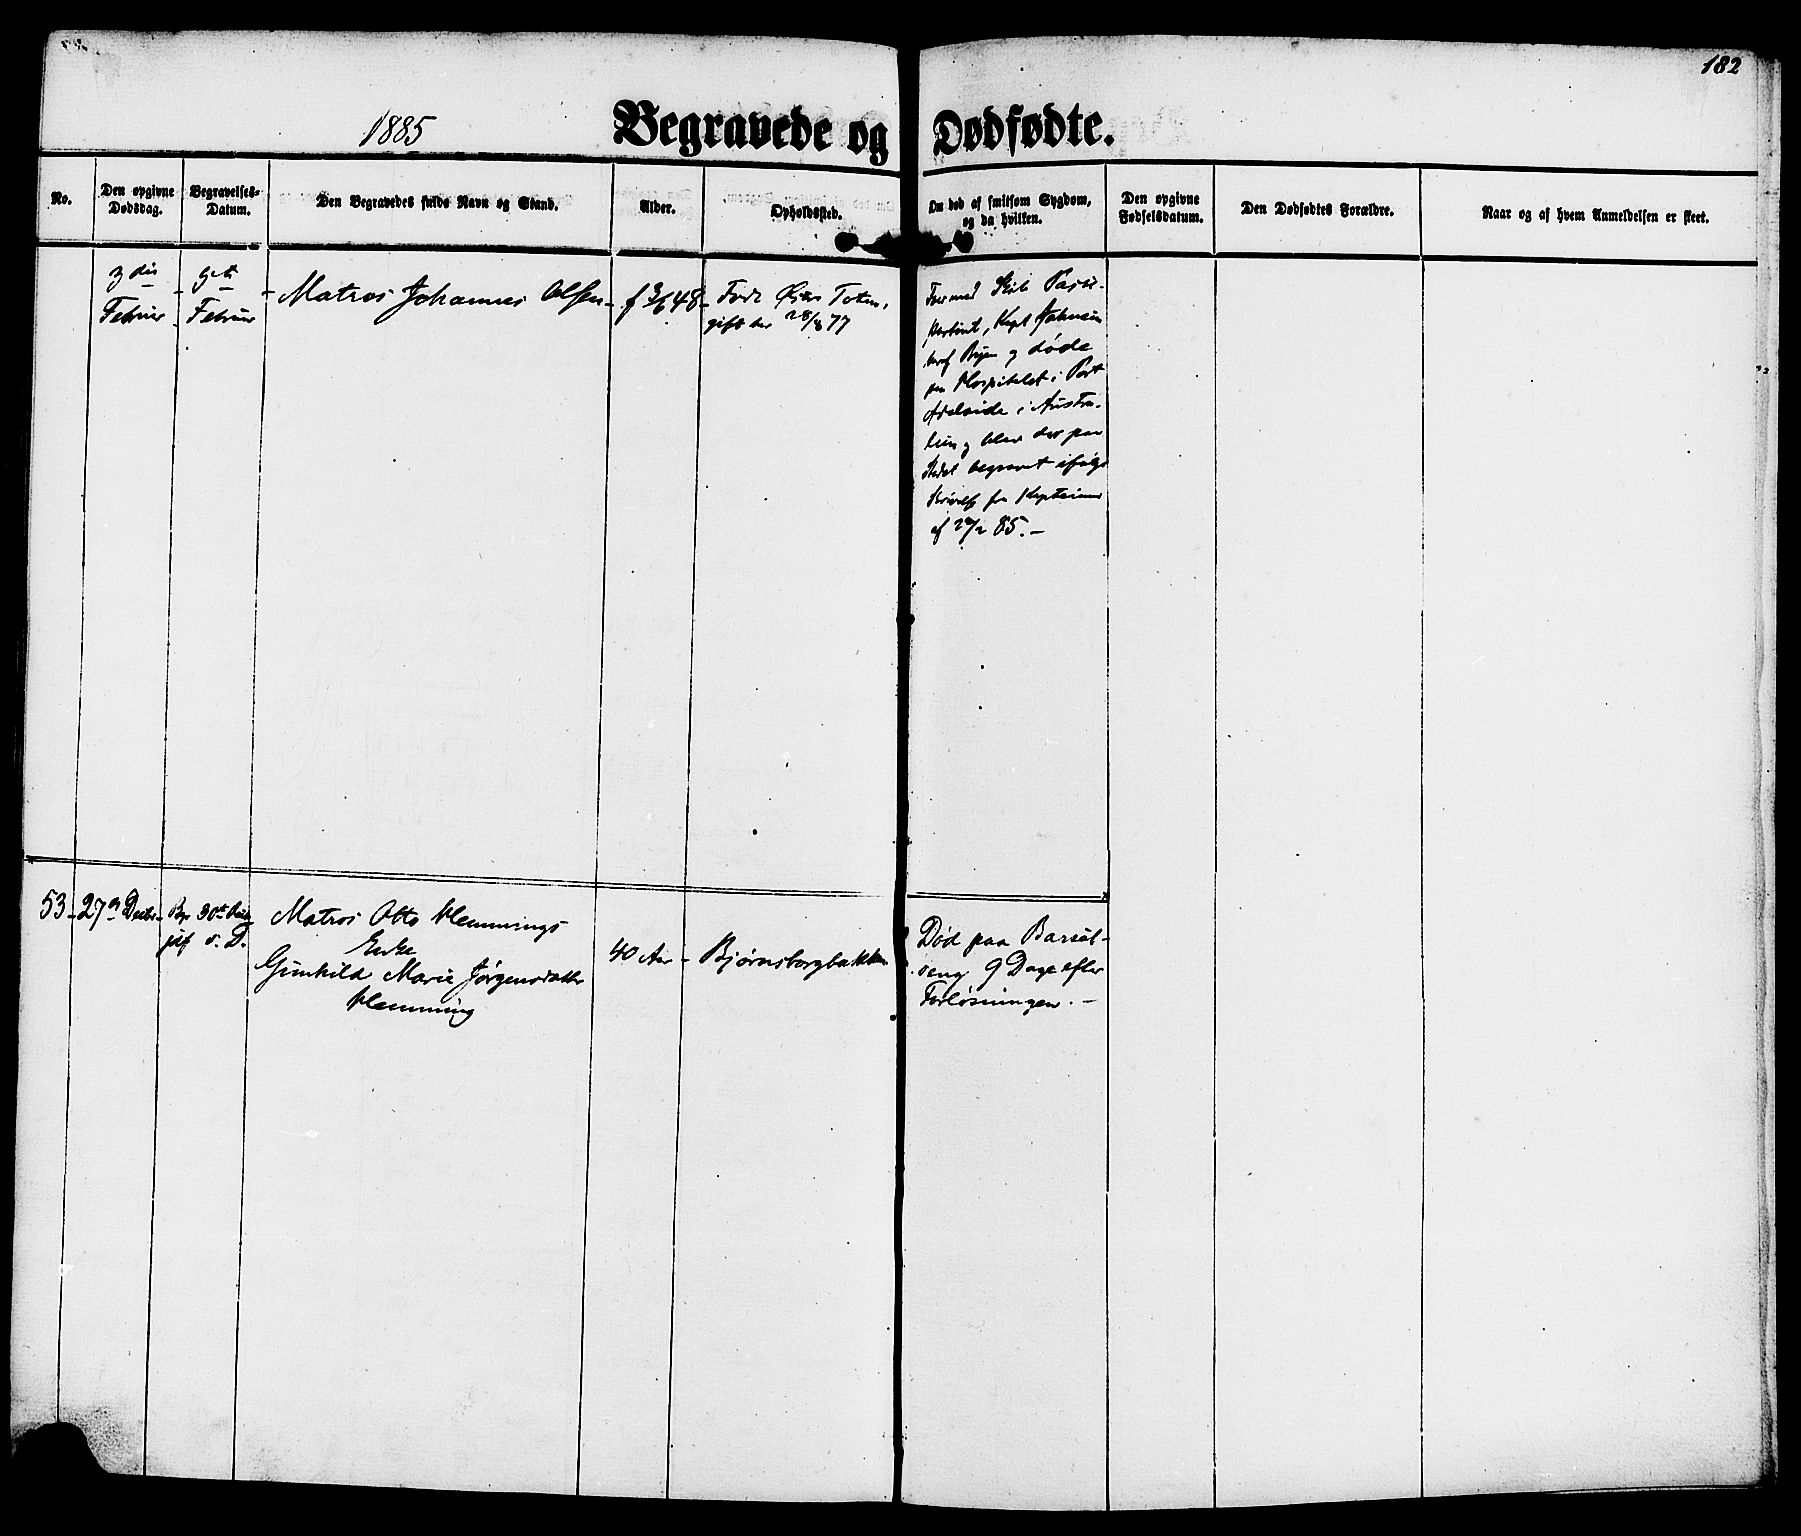 182
1885
Begravede og Dødfødte.
No.
Den opgivne Dødsdag.
Begravelses-Datum.
Den Begravedes fulde Navn og Stand.
Alder.
Opholdssted.
Om død af smitsom Sygdom, og da hvilken.
Den opgivne Fødselsdatum.
Den Dødfødtes Forældre.
Naar og af hvem Anmeldelsen er skeet.
3die
Februar
9de
Februar
Matros Johannes Olsen
f 3/6 48
Født Østre Toten,
gift her 28/8 77
For med Skib
Kapt Johnsen
Byen og døde
paa Hospitalet i Port
Adelaide i Austra-
lien og blev der paa
Stedet begravet ifølge
Skrivelse fra Kapteinen
af 85.
53
27de Decbr
30te
s. D.
Matros Otto Hemmings
Enke
Gunhild Marie Jørgensdatter
Hemming
40 Aar
Bjørnsborgbakken
Død paa Barsel-
seng 9 Dage efter
Forløsningen.